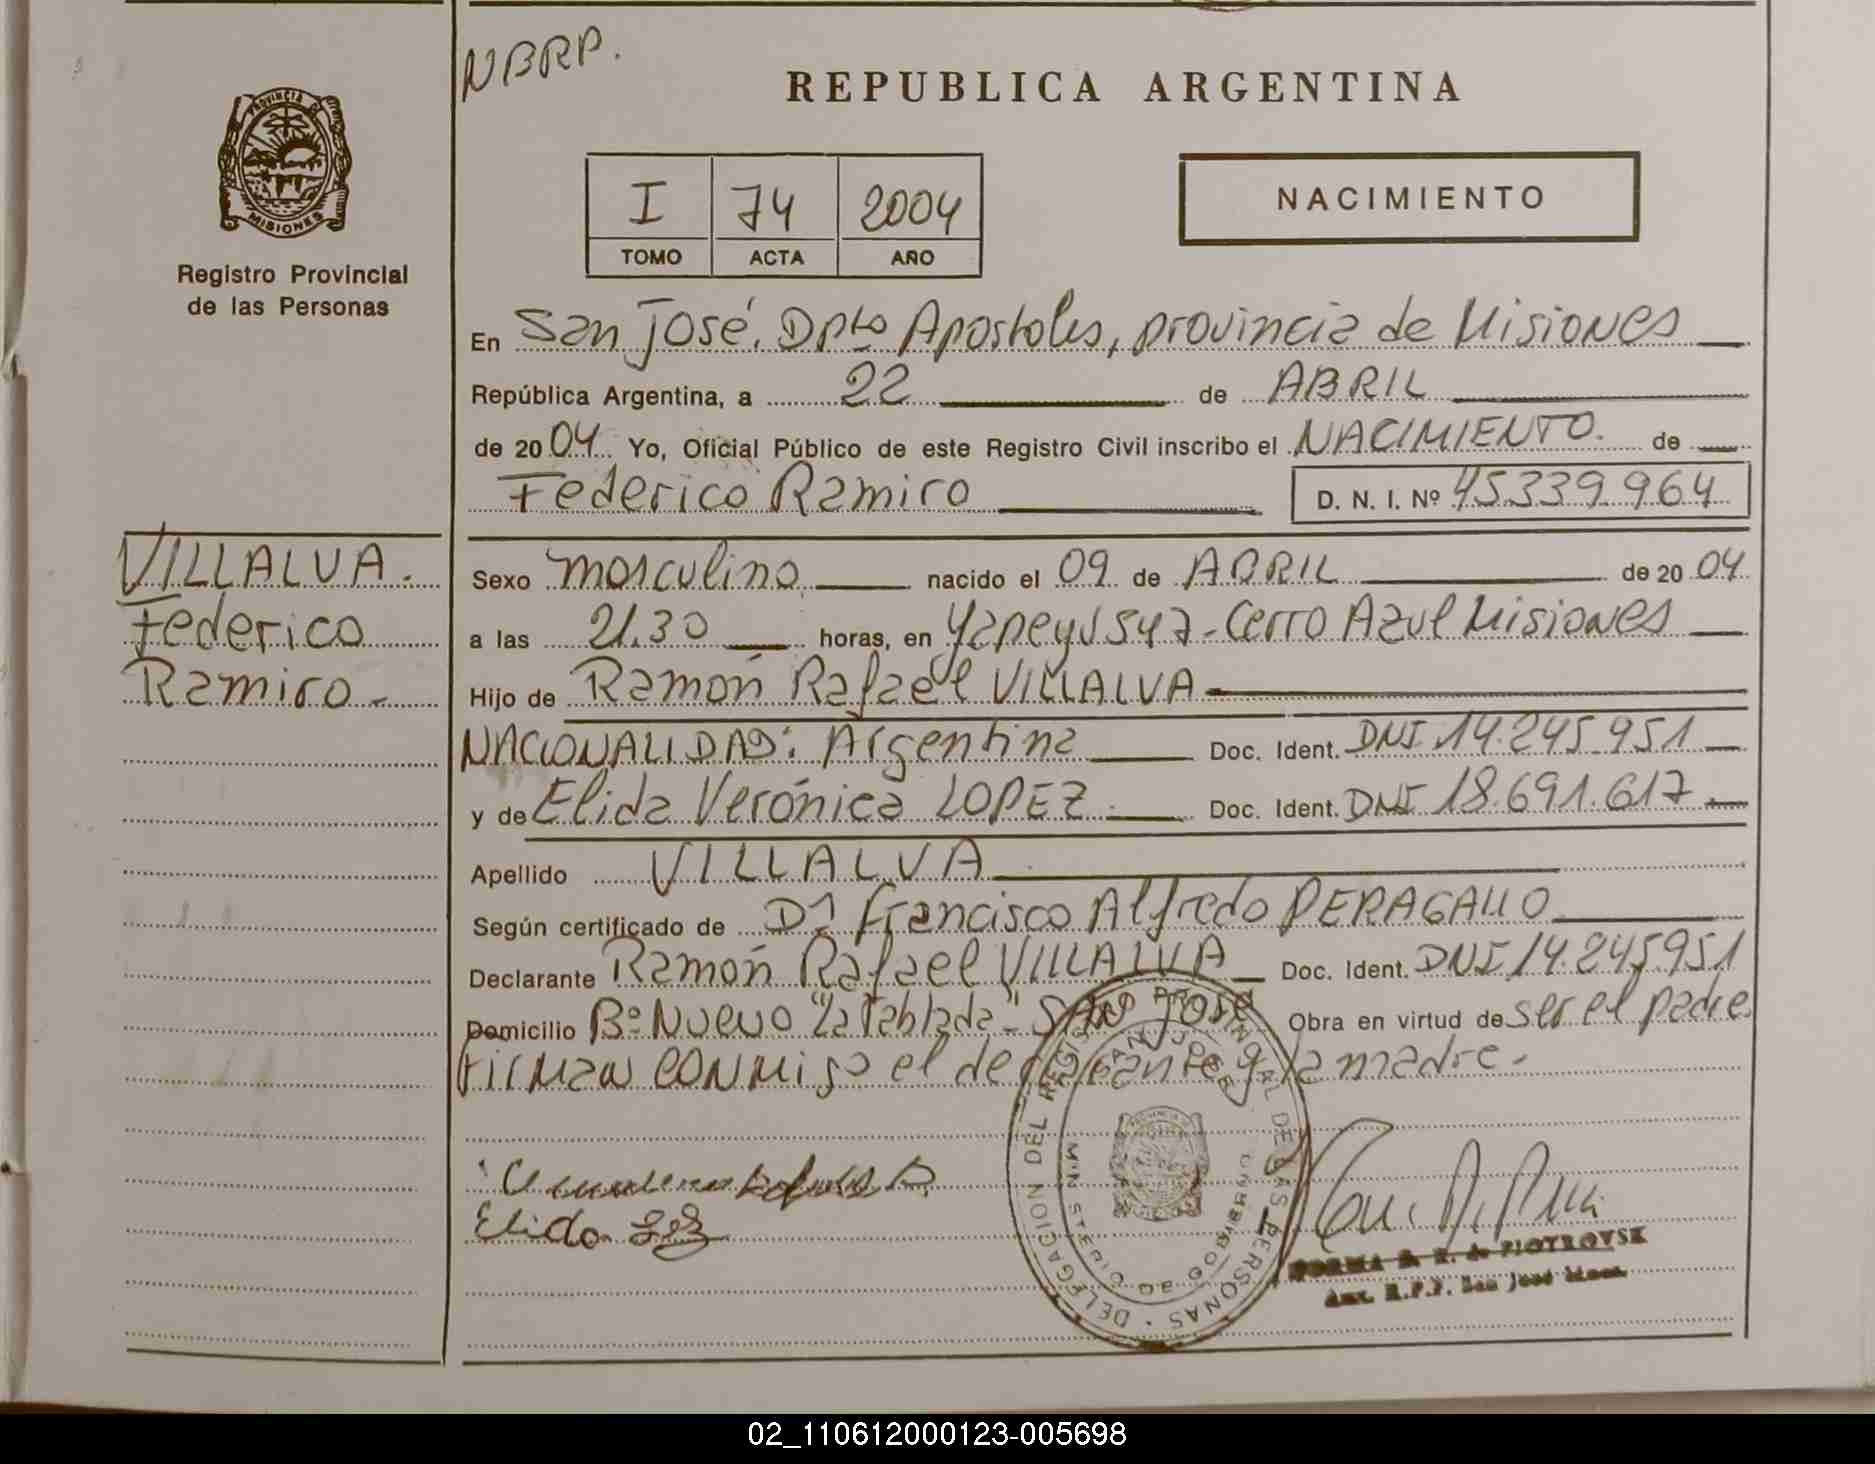 NBRP.
REPUBLICA ARGENTINA
PROVINCIA DE
MISIONES
Registro Provincial
de las Personas
I 74 2004
TOMO ACTA AÑO
NACIMIENTO
En San José, Dpto Apostoles, provincia de Misiones
República Argentina, a 22 de ABRIL
de 2004 Yo, Oficial Público de este Registro Civil inscribo el NACIMIENTO. de
Federico Ramiro D. N. I. Nº 45339964
VILLALVA.
Federico
Ramiro -
Sexo masculino nacido el 09 de ABRIL de 2004
a las 21.30 horas, en Yapeyu 547 - Cerro Azul Misiones
Hijo de Ramón Rafael VILLALVA
NACIONALIDAD: Argentina Doc. Ident. DNI 14.245.951
y de Elida Verónica LOPEZ. Doc. Ident. DNI 18.691.617.
Apellido VILLALVA
Según certificado de Dr Francisco Alfredo PERAGALLO
Declarante Ramón Rafael VILLALVA Doc. Ident. DNI 14.245951
Domicilio Bº Nuevo "La Tablada" - SAN José Obra en virtud de ser el padre
Firman conmigo el declarante y la madre -
DELEGACION DEL REGISTRO PROVINCIAL DE LAS PERSONAS
SAN JOSE
MINISTERIO DE GOBIERNO
Elida
NORMA B. R. de PIOTROVSK
Aux. R.P.P. San José Mnes.
02_110612000123-005698